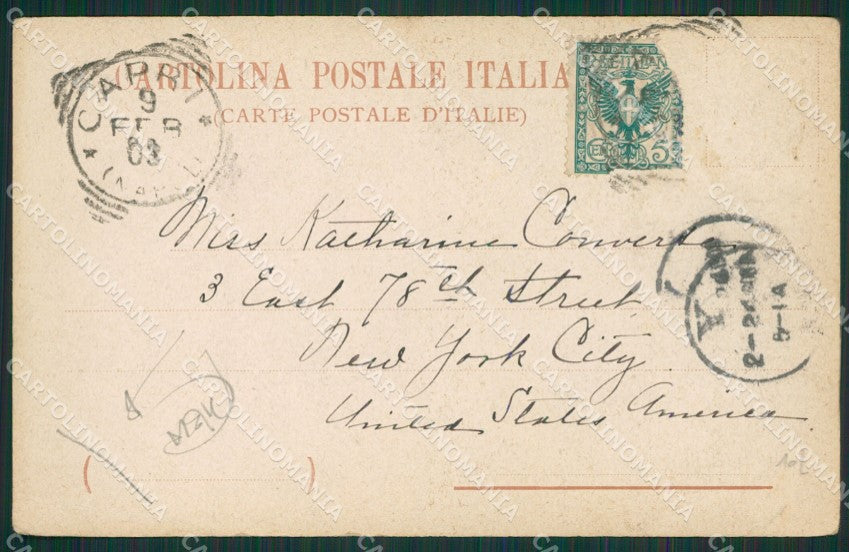 CARTOLINA POSTALE ITALIA
(CARTE POSTALE D'ITALIE)
CAPRI
9
FEB
03
(NAPOLI)
5
Mrs Katharine Converse
3 East 78th Street
New York City
United States America
102
CARTOLINOMANIA